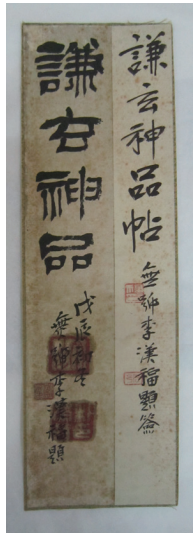 謙玄神品帖
無號李漢福題簽
謙玄神品
戊辰初冬
無號李漢福題